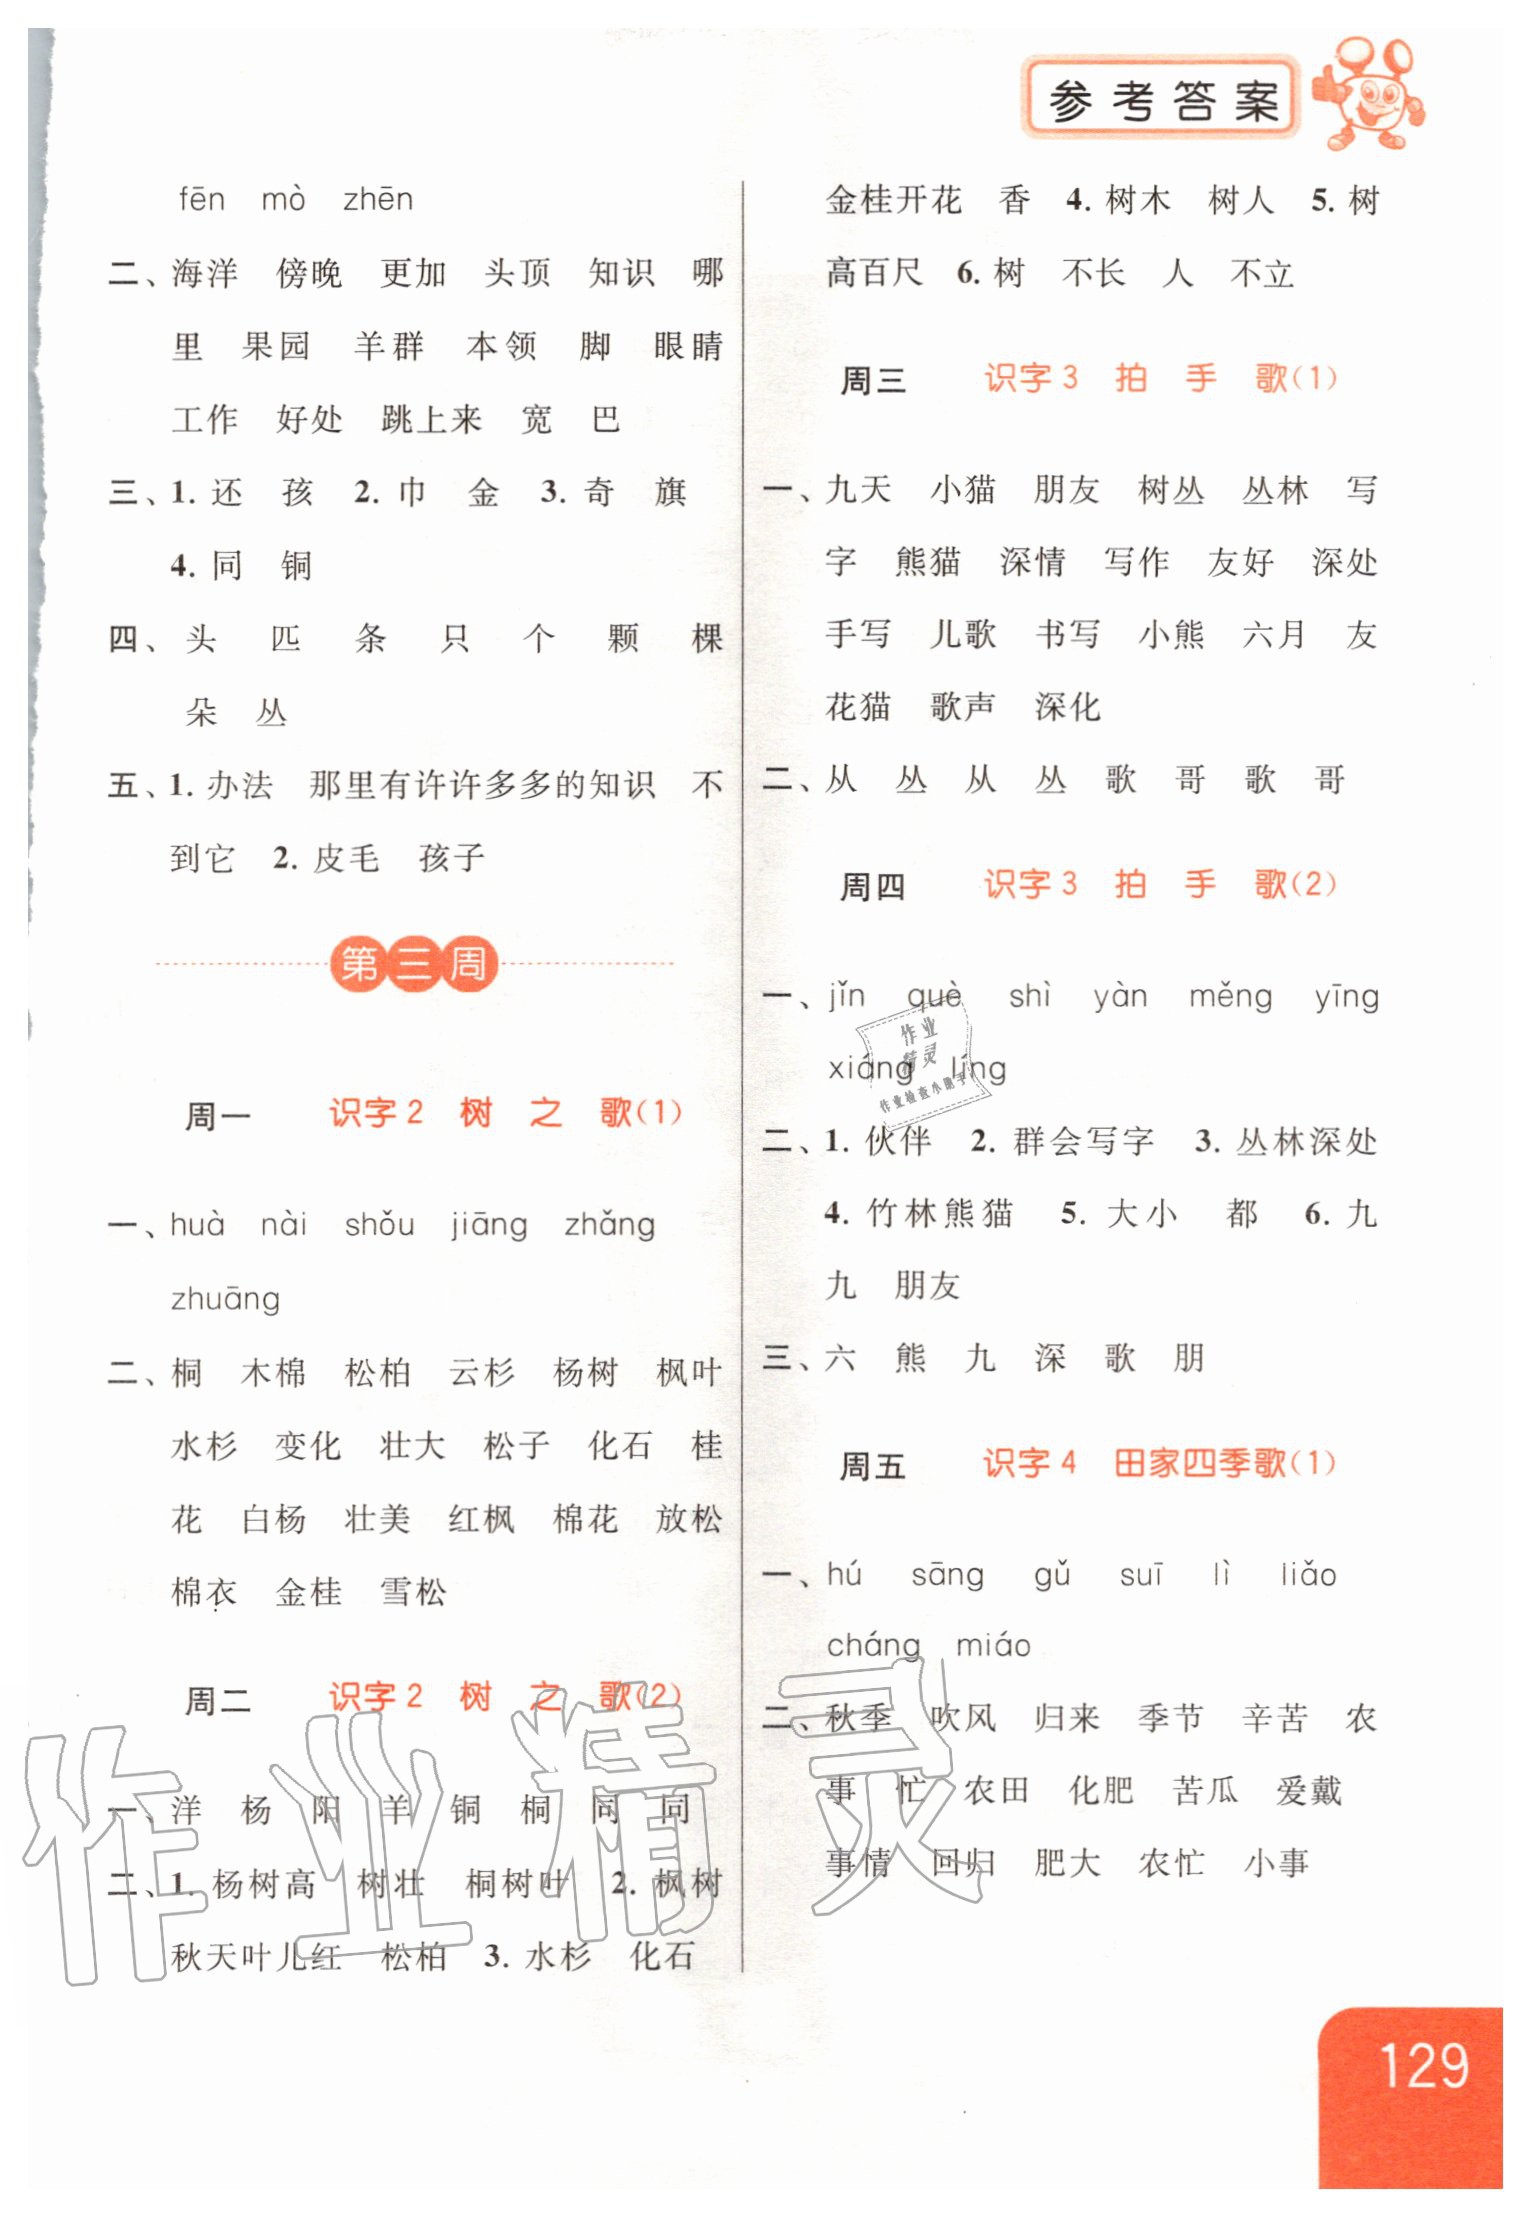 参考答案
fēn mò zhēn
二、海洋 傍晚 更加 头顶 知识 哪
里 果园 羊群 本领 脚 眼睛
工作 好处 跳上来 宽 巴
三、1. 还 孩 2. 巾 金 3. 奇 旗
4. 同 铜
四、头 匹 条 只 个 颗 棵
朵 丛
五、1. 办法 那里有许许多多的知识 不
到它 2. 皮毛 孩子
第三周
周一 识字2 树之歌(1)
一、huà nài shǒu jiāng zhǎng
zhuāng
二、桐 木棉 松柏 云杉 杨树 枫叶
水杉 变化 壮大 松子 化石 桂
花 白杨 壮美 红枫 棉花 放松
棉衣 金桂 雪松
周二 识字2 树之歌(2)
一、洋 杨 阳 羊 铜 桐 同 同
二、1. 杨树高 树壮 桐树叶 2. 枫树
秋天叶儿红 松柏 3. 水杉 化石
金桂开花 香 4. 树木 树人 5. 树
高百尺 6. 树 不长 人 不立
周三 识字3 拍手歌(1)
一、九天 小猫 朋友 树丛 丛林 写
字 熊猫 深情 写作 友好 深处
手写 儿歌 书写 小熊 六月 友
花猫 歌声 深化
二、从 丛 从 丛 歌 哥 歌 哥
周四 识字3 拍手歌(2)
一、jǐn què shì yàn měng yīng
xiáng líng
二、1. 伙伴 2. 群会写字 3. 丛林深处
4. 竹林熊猫 5. 大小 都 6. 九
九 朋友
三、六 熊 九 深 歌 朋
周五 识字4 田家四季歌(1)
一、hú sāng gǔ suī lì liǎo
cháng miáo
二、秋季 吹风 归来 季节 辛苦 农
事 忙 农田 化肥 苦瓜 爱戴
事情 回归 肥大 农忙 小事
作业
精灵
作业检查小助手
作业精灵
129